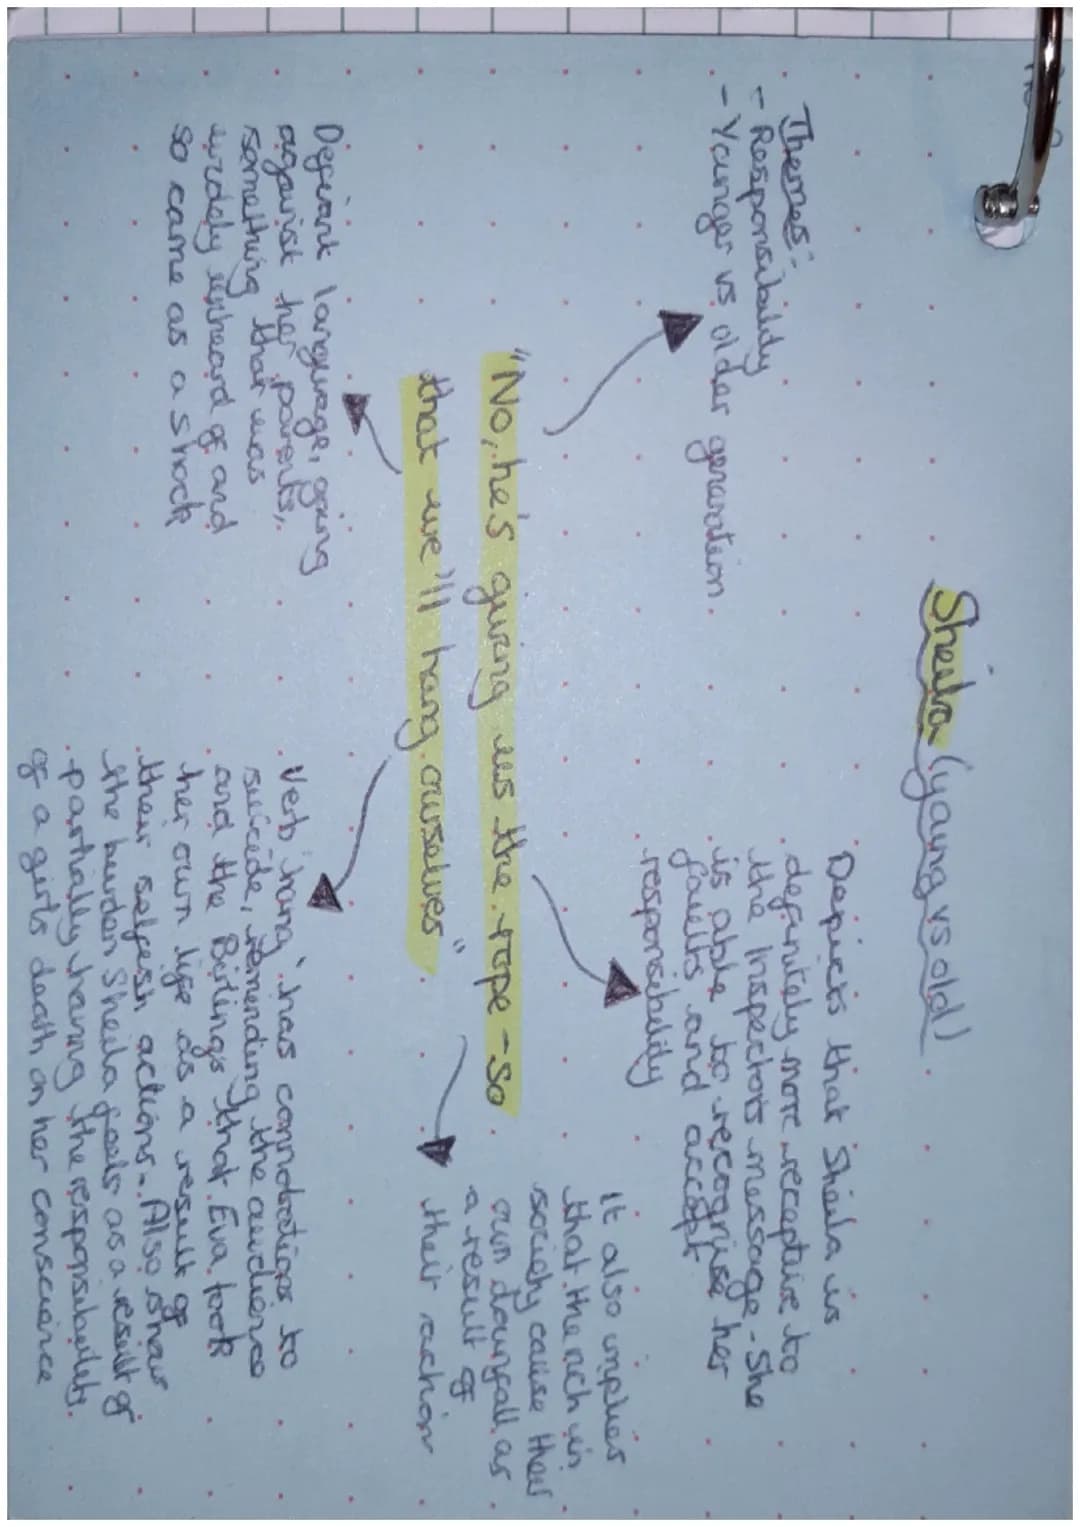 Sheila (young vs old)
Themes:-
- Responsibility
- Younger vs older generation
Depicts that Sheila is
definitely more receptive to
the Inspectors message - She
is able to recognise her
faults and accept
responsibility
"No, he's giving us the rope - so
that we'll hang ourselves"
It also implies
that the rich in
society cause their
own downfall as
a result of
their action
Defiant language, going
against her parents,
something that was
widely unheard of and
so came as a shock
Verb 'hang' has connotations to
suicide, remending the audience
and the Birlings that Eva took
her own life as a result of
their selfish actions. Also show
the burden Sheila feels as a result of
partially having the responsibility
of a girls death on her conscience